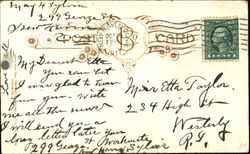 May 4 Sylvia
299 George St
New Haven
POST CARD
My Dearest Etta
You can bet
I was glad to hear
from you. Write
me all the news
I will send you a
long letter later your
299 George St
Sylvia
Love
Miss Etta Taylor.
234 High St
Westerly
R.I.